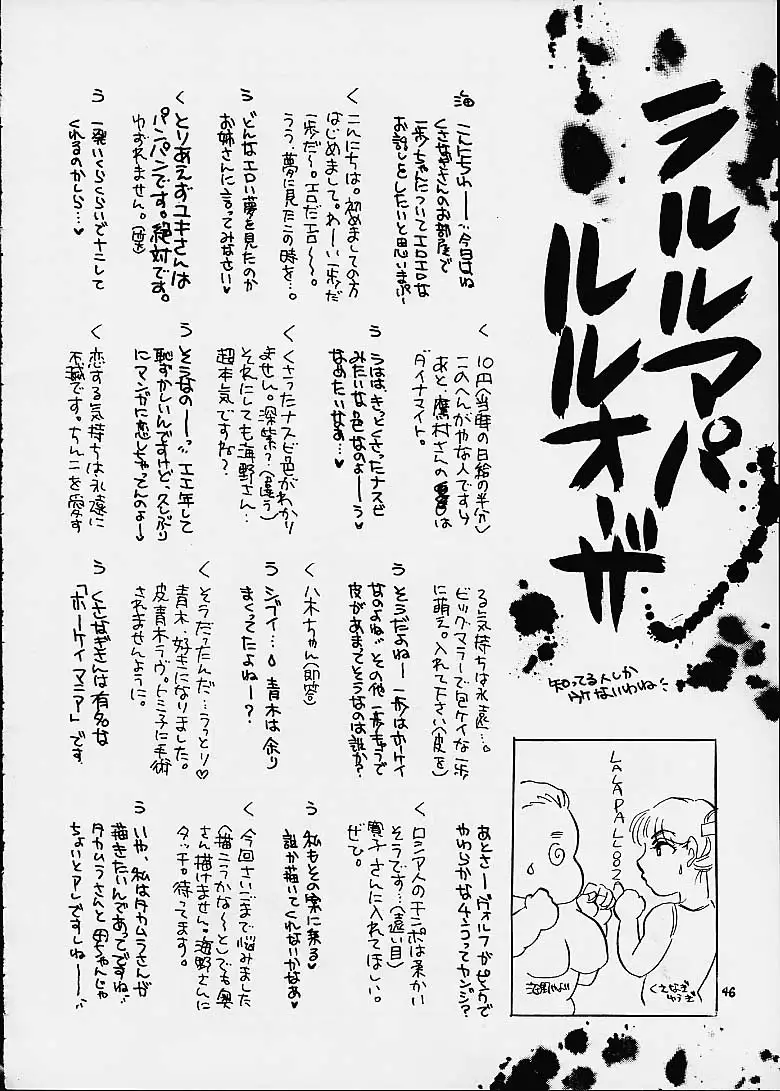 ラルルアパルルオーザ
知ってる人しか
ウケないわね
LALAPALOOZA
海野やよい
くさなぎゆうぎ
46
海 こんにちわー 今日はね
くさなぎさんのお部屋で
一歩ちゃんについてエロエロな
お話しをしたいと思いまぷー
く こんにちは。初めましての方
はじめまして。わーい一歩だ
一歩だ〜。エロだエロ〜〜。
うう、夢に見たこの時を…。
う どんなエロい夢を見たのか
お姉さんに言ってみなさい♥
く とりあえずユキさんは
パンパンです。絶対です。
ゆずれません。
う 一発いくらくらいでナニして
くれるのかしら…♥
く 10円(当時の日給の半分)
このへんがやな人ですよ
あと、鷹村さんの
ダイナマイト。
う うはは、きっとくさったナスビ
みたいな色なのよーう♥
なめたいなぁ…♥
く くさったナスビ色がわかり
ません。深紫?(違う)
それにしても海野さん…
超本気ですね?
う そうなのーーっ エエ年して
恥ずかしいんですけど、久しぶり
にマンガに恋しちゃってんのよー
く 恋する気持ちは永遠に
不滅です。ちんこを愛す
る気持ちは永遠…。
ビッグマラーで包ケイな一歩
に萌え。入れて下さい(皮を)
う そうだよねー 一歩はホーケイ
なのよね その他一歩もうで
皮があまってそうなのは誰か?
く 八木ちゃん(即答)
う シブイ… 青木は余り
まくってたよねー?
く そうだったんだ…うっとり♡
青木、好きになりました。
皮青木ラヴ。トミ子に手術
されませんように。
う くさなぎさんは有名な
「ホーケイマニア」です
あとさー ヴォルグがピンクで
やわらかなチンコってカンジ?
く ロシア人のチンポは柔かい
そうです…(遠い目)
寛子さんに入れてほしい。
ぜひ。
う 私もその案に乗る♥
誰か描いてくれないかなあ♥
く 今回さいごまで悩みました
(描こうかな〜と)でも奥
さん描けません。海野さんに
タッチ。待ってます。
う いや、私はタカムラさんが
描きたいんであってですね
タカムラさんと母ちゃんじゃ
ちょいとアレですしねー